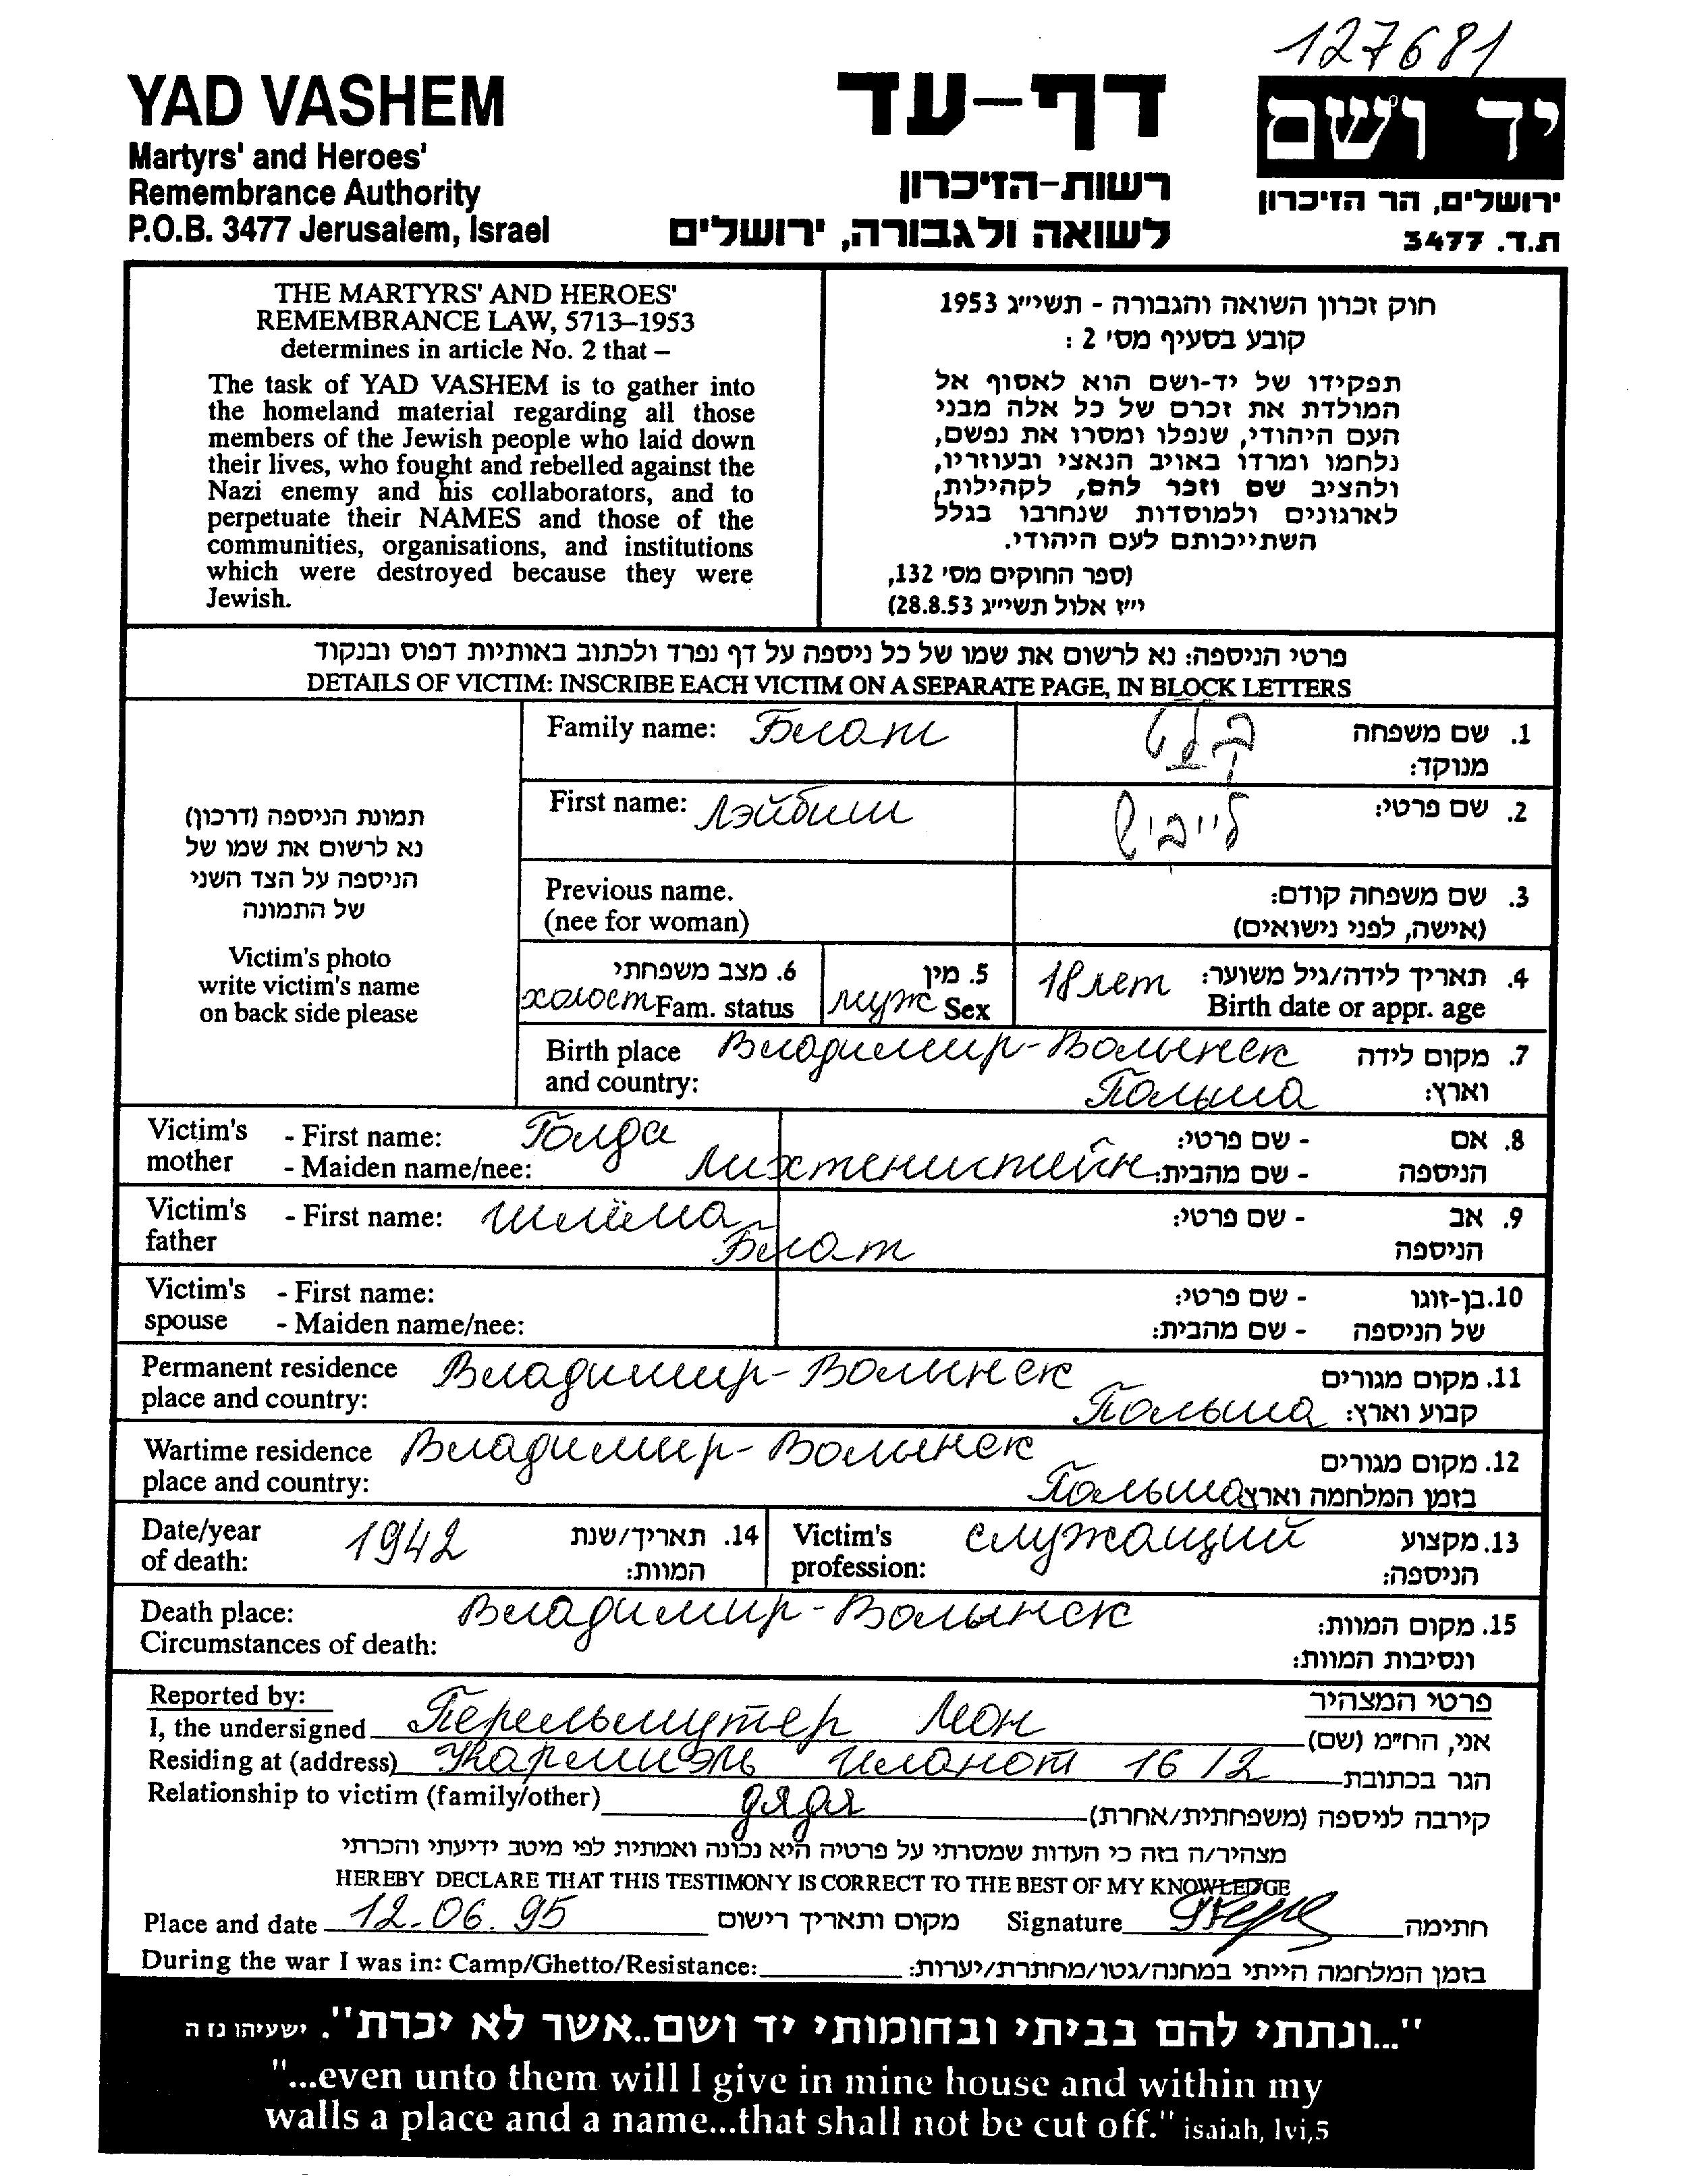 127681
YAD VASHEM
Martyrs' and Heroes'
Remembrance Authority
P.O.B. 3477 Jerusalem, Israel
דף-עד
רשות-הזיכרון
לשואה ולגבורה, ירושלים
יד ושם
ירושלים, הר הזיכרון
ת.ד. 3477
THE MARTYRS' AND HEROES'
REMEMBRANCE LAW, 5713–1953
determines in article No. 2 that –
The task of YAD VASHEM is to gather into
the homeland material regarding all those
members of the Jewish people who laid down
their lives, who fought and rebelled against the
Nazi enemy and his collaborators, and to
perpetuate their NAMES and those of the
communities, organisations, and institutions
which were destroyed because they were
Jewish.
חוק זכרון השואה והגבורה - תשי״ג 1953
קובע בסעיף מס' 2 :
תפקידו של יד-ושם הוא לאסוף אל
המולדת את זכרם של כל אלה מבני
העם היהודי, שנפלו ומסרו את נפשם,
נלחמו ומרדו באויב הנאצי ובעוזריו,
ולהציב שם וזכר להם, לקהילות,
לארגונים ולמוסדות שנחרבו בגלל
השתייכותם לעם היהודי.
(ספר החוקים מס' 132,
י״ז אלול תשי״ג 28.8.53)
פרטי הניספה: נא לרשום את שמו של כל ניספה על דף נפרד ולכתוב באותיות דפוס ובנקוד
DETAILS OF VICTIM: INSCRIBE EACH VICTIM ON A SEPARATE PAGE, IN BLOCK LETTERS
תמונת הניספה (דרכון)
נא לרשום את שמו של
הניספה על הצד השני
של התמונה
Victim's photo
write victim's name
on back side please
Family name: Блат בלט 1. שם משפחה
מנוקד:
First name: Лэйбиш לייביש 2. שם פרטי:
Previous name. 3. שם משפחה קודם:
(nee for woman) (אישה, לפני נישואים)
6. מצב משפחתי 5. מין 18 лет 4. תאריך לידה/גיל משוער:
холост Fam. status муж Sex Birth date or appr. age
Birth place Владимир-Волынск 7. מקום לידה
and country: Польша וארץ:
Victim's - First name: Голда - שם פרטי: 8. אם
mother - Maiden name/nee: Лихтенштейн - שם מהבית: הניספה
Victim's - First name: Шлёма - שם פרטי: 9. אב
father Блат הניספה
Victim's - First name: - שם פרטי: 10. בן-זוגו
spouse - Maiden name/nee: - שם מהבית: של הניספה
Permanent residence Владимир-Волынск 11. מקום מגורים
place and country: Польша קבוע וארץ:
Wartime residence Владимир-Волынск 12. מקום מגורים
place and country: Польша בזמן המלחמה וארץ
Date/year 1942 14. תאריך/שנת Victim's служащий 13. מקצוע
of death: המוות: profession: הניספה:
Death place: Владимир-Волынск 15. מקום המוות:
Circumstances of death: ונסיבות המוות:
Reported by: פרטי המצהיר
I, the undersigned Перельмутер Мон אני, הח״מ (שם)
Residing at (address) Кармиэль Иланот 16/2 הגר בכתובת
Relationship to victim (family/other) дядя קירבה לניספה (משפחתית/אחרת)
מצהיר/ה בזה כי העדות שמסרתי על פרטיה היא נכונה ואמתית לפי מיטב ידיעתי והכרתי
HEREBY DECLARE THAT THIS TESTIMONY IS CORRECT TO THE BEST OF MY KNOWLEDGE
Place and date 12.06.95 מקום ותאריך רישום Signature חתימה
During the war I was in: Camp/Ghetto/Resistance: בזמן המלחמה הייתי במחנה/גטו/מחתרת/יערות:
"...ונתתי להם בביתי ובחומותי יד ושם..אשר לא יכרת". ישעיהו נו ה
"...even unto them will I give in mine house and within my
walls a place and a name...that shall not be cut off." isaiah, lvi,5